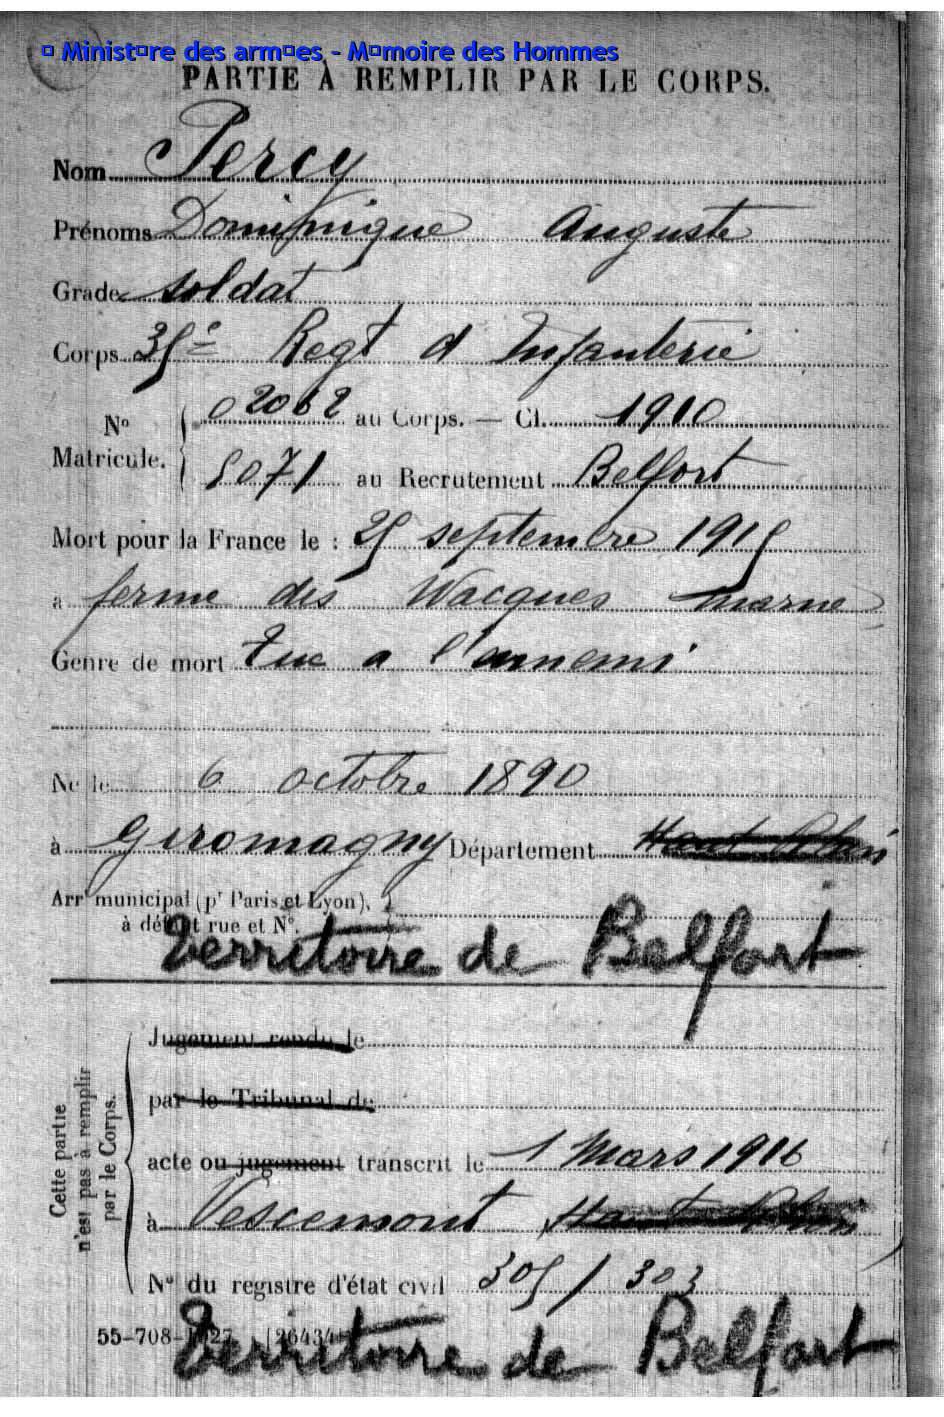 © Ministère des armées - Mémoire des Hommes
PARTIE À REMPLIR PAR LE CORPS.
Nom Percy
Prénoms Dominique Auguste
Grade soldat
Corps 35e Regt d Infanterie
No Matricule. 02062 au Corps. — Cl. 1910
5071 au Recrutement Belfort
Mort pour la France le : 25 septembre 1915
a ferme des Wacques marne
Genre de mort Tué a l'annemi
Né le 6 octobre 1890
à Giromagny Département Haut Rhin
Arrt municipal (pr Paris et Lyon),
à défaut rue et No.
Territoire de Belfort
Cette partie n'est pas à remplir par le Corps.
Jugement rendu le
par le Tribunal de
acte ou jugement transcrit le 1 Mars 1916
à Vescemont Haut Rhin
No du registre d'état civil 305 / 303
55-708-1927. [26434
Territoire de Belfort